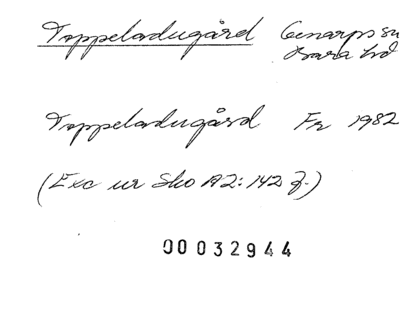 Toppeladugård Genarps sn
Bara hd
Toppeladugård Fr 1982
(Exc ur Sko A2:142 f.)
00032944